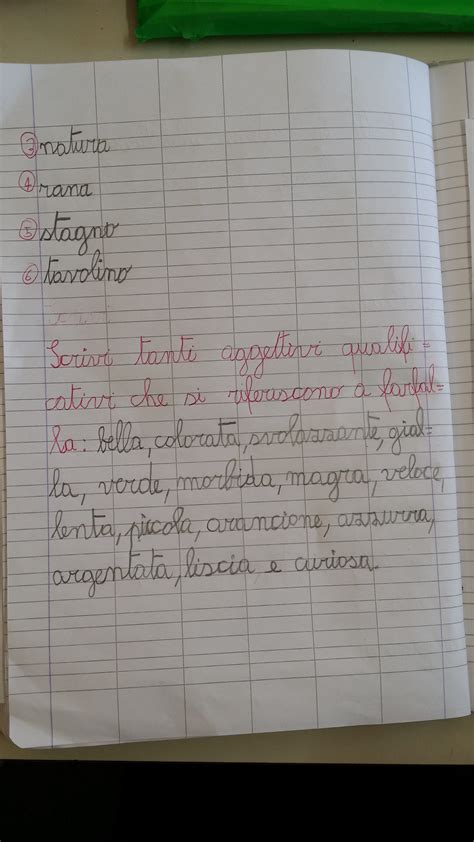 3 natura
4 rana
5 stagno
6 tavolino
Scrivi tanti aggettivi qualifi=
cativi che si riferiscono a farfal=
la: bella, colorata, svolazzante, gial=
la, verde, morbida, magra, veloce,
lenta, piccola, arancione, azzurra,
argentata, liscia e curiosa.